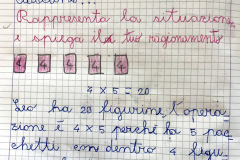 Rappresenta la situazione
e spiega il tuo ragionamento
4 4 4 4 4
4 x 5 = 20
Leo ha 20 figurine, l'opera-
zione è 4 x 5 perché ha 5 pac-
chetti con dentro 4 figu